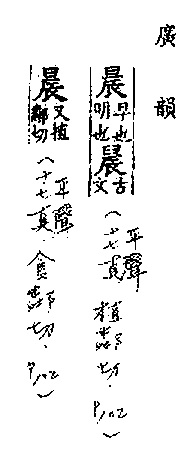 廣韻
晨早也明也古文(平聲十七真.植鄰切.P102)
晨又植鄰切(平聲十七真.食鄰切.P102)